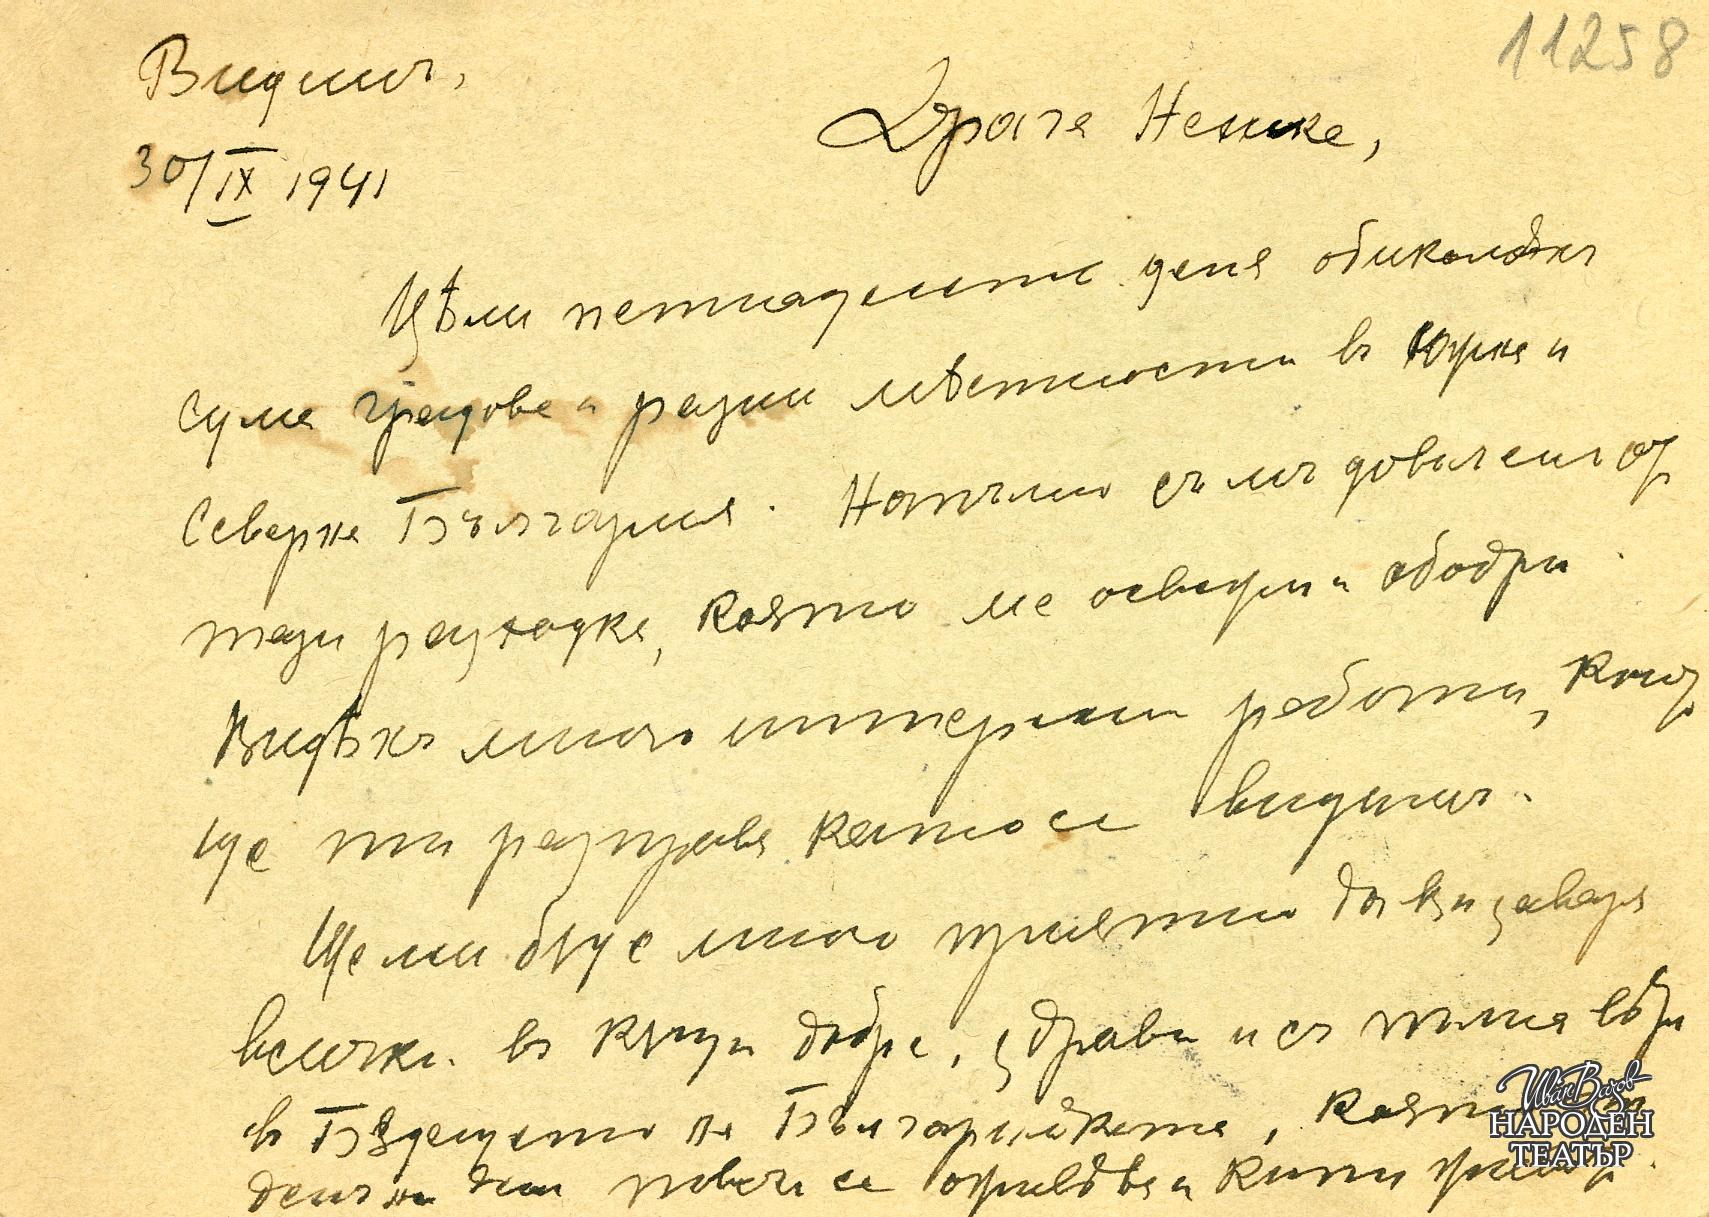 11258
Видинъ,
30/IX 1941
Драга Ненке,
Цѣли петнадесеть деня обиколѣхъ
сума градове и разни мѣстности въ Южна и
Северна България. Напълно съмъ доволенъ отъ
тази разходка, която ме освежи и ободри.
Видѣхъ много интересни работи, които
ще ти разправя като се видимъ.
Ще ми бѫде много приятно да ви заваря
всички въ кѫщи добре, здрави и съ пълна вѣра
въ Бѫдещето на България, която
день на день повече се
Иванъ Вазовъ
НАРОДЕН
ТЕАТЪР